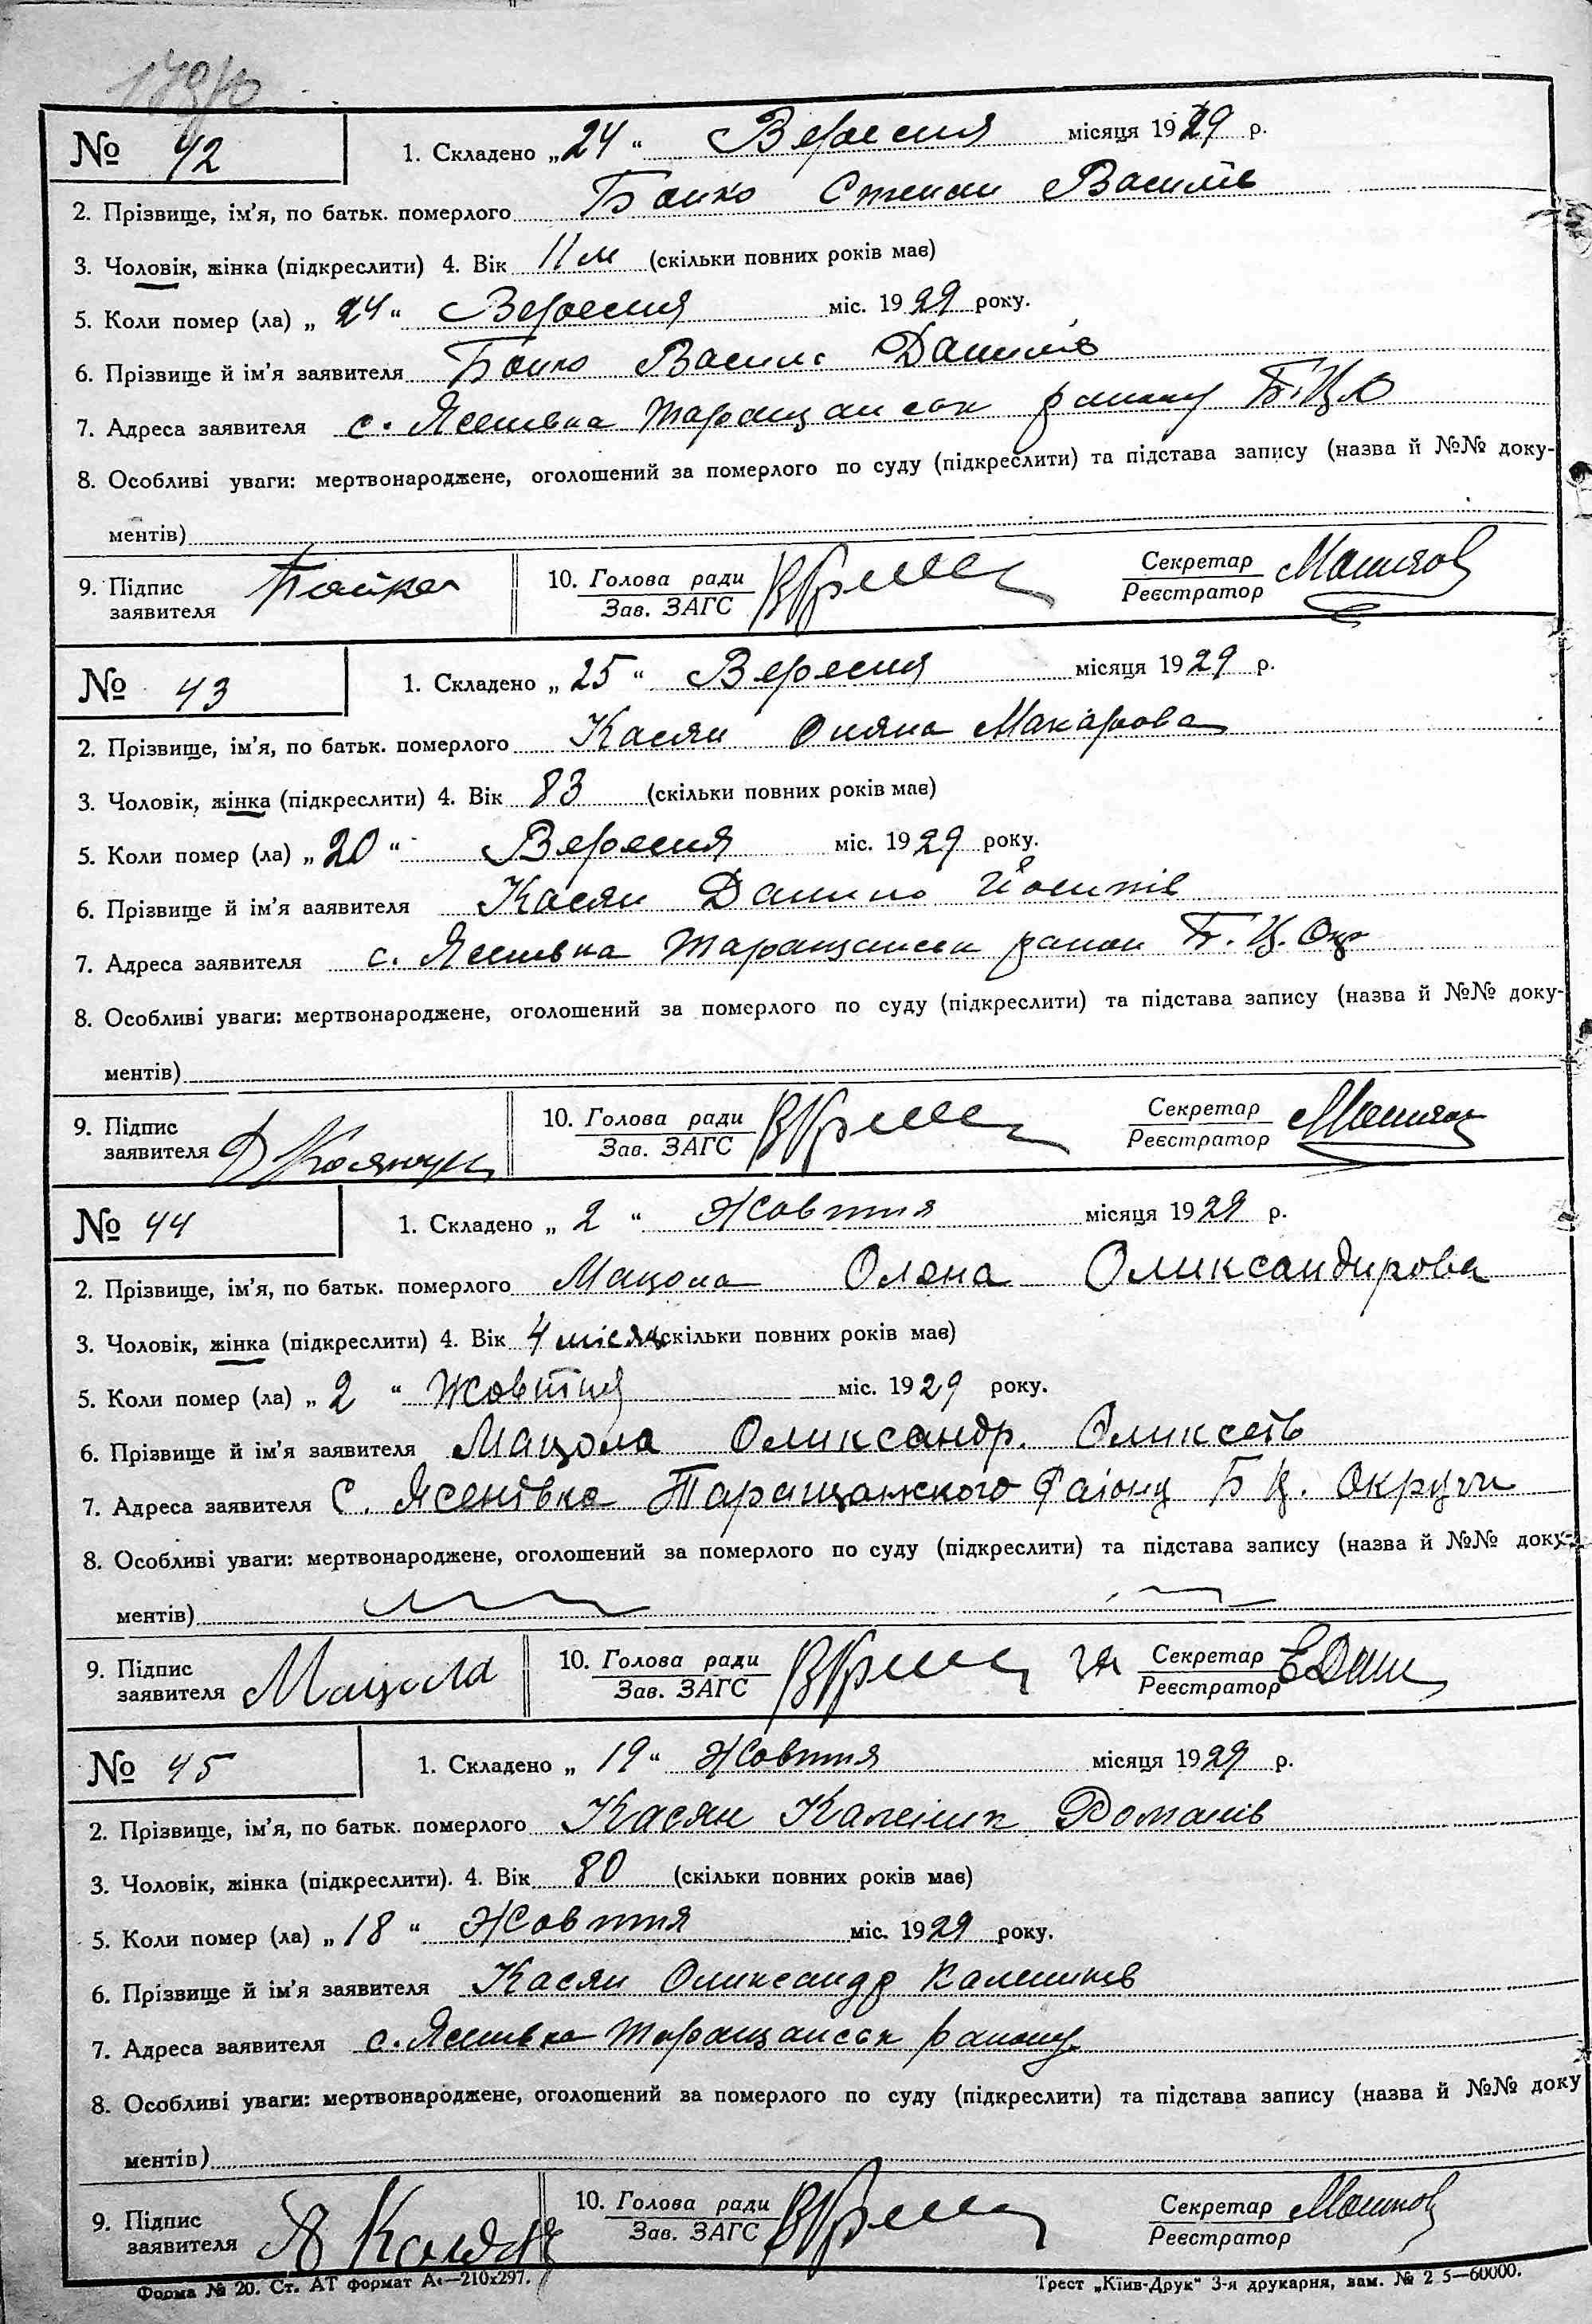 179/10
№ 42
1. Складено „24“ Вересня місяця 1929 р.
2. Прізвище, ім'я, по батьк. померлого Боико Степан Василів
3. Чоловік, жінка (підкреслити) 4. Вік 11 м (скільки повних років має)
5. Коли помер (ла) „24“ Вересня міс. 1929 року.
6. Прізвище й ім'я заявителя Боико Васил Данилів
7. Адреса заявителя с. Ясенівка Таращанськ району Б.Ц.О
8. Особливі уваги: мертвонароджене, оголошений за померлого по суду (підкреслити) та підстава запису (назва й №№ доку-
ментів)
9. Підпис заявителя Бойко 10. Голова ради Зав. ЗАГС Секретар Реєстратор
№ 43
1. Складено „25“ Вересня місяця 1929 р.
2. Прізвище, ім'я, по батьк. померлого Касян Оляна Макарова
3. Чоловік, жінка (підкреслити) 4. Вік 83 (скільки повних років має)
5. Коли помер (ла) „20“ Вересня міс. 1929 року.
6. Прізвище й ім'я заявителя Касян Данило Йосипів
7. Адреса заявителя с. Ясенівка Таращанськ район Б.Ц. Окр
8. Особливі уваги: мертвонароджене, оголошений за померлого по суду (підкреслити) та підстава запису (назва й №№ доку-
ментів)
9. Підпис заявителя Д 10. Голова ради Зав. ЗАГС Секретар Реєстратор
№ 44
1. Складено „2“ Жовтня місяця 1929 р.
2. Прізвище, ім'я, по батьк. померлого Мацола Оляна Оликсандирова
3. Чоловік, жінка (підкреслити) 4. Вік 4 місяц (скільки повних років має)
5. Коли помер (ла) „2“ Жовтня міс. 1929 року.
6. Прізвище й ім'я заявителя Мацола Оликсандр. Оликсеїв
7. Адреса заявителя С. Ясенівка Таращанського Району Б Ц. Округи
8. Особливі уваги: мертвонароджене, оголошений за померлого по суду (підкреслити) та підстава запису (назва й №№ доку-
ментів)
9. Підпис заявителя Мацола 10. Голова ради Зав. ЗАГС за Секретар Реєстратор
№ 45
1. Складено „19“ Жовтня місяця 1929 р.
2. Прізвище, ім'я, по батьк. померлого Касян Каленик Романів
3. Чоловік, жінка (підкреслити). 4. Вік 80 (скільки повних років має)
5. Коли помер (ла) „18“ Жовтня міс. 1929 року.
6. Прізвище й ім'я заявителя Касян Олександр Калеників
7. Адреса заявителя с. Ясенівка Таращанськ району
8. Особливі уваги: мертвонароджене, оголошений за померлого по суду (підкреслити) та підстава запису (назва й №№ доку
ментів)
9. Підпис заявителя 10. Голова ради Зав. ЗАГС Секретар Реєстратор
Форма № 20. Ст. АТ формат А₄—210x297. Трест „Київ-Друк“ 3-я друкарня, зам. № 2 5—60000.